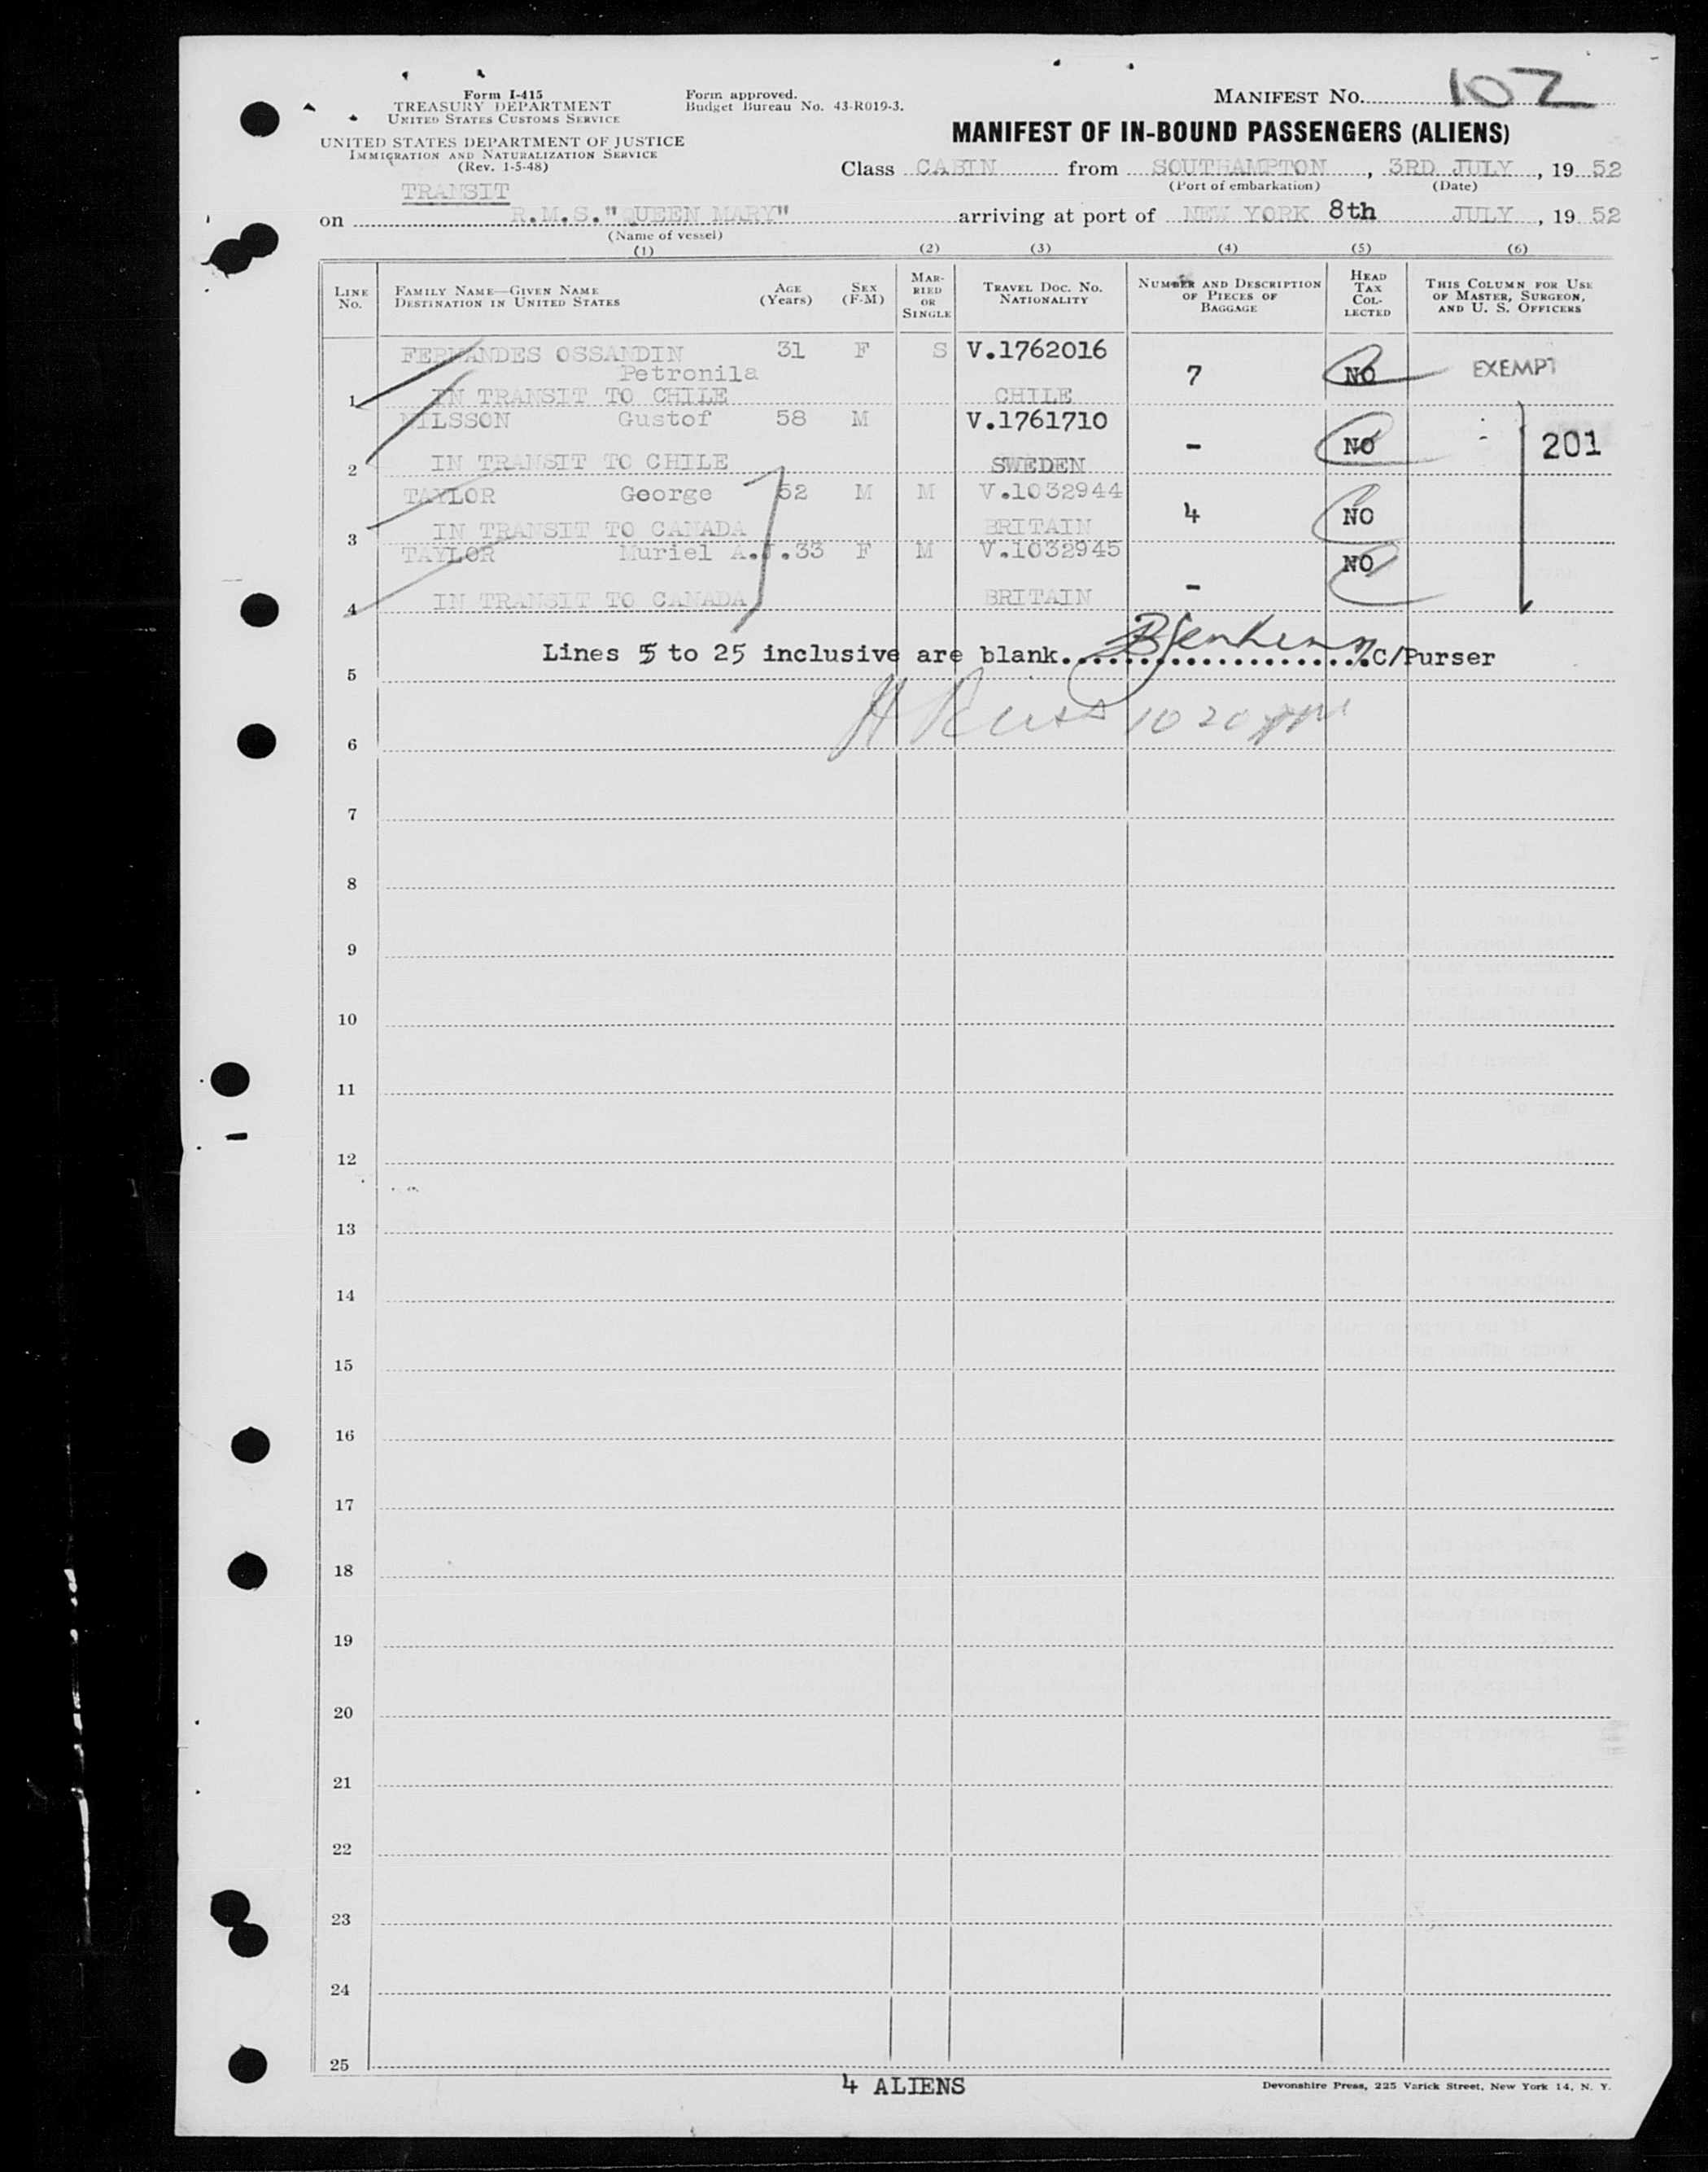 Form I-415
TREASURY DEPARTMENT
UNITED STATES CUSTOMS SERVICE
UNITED STATES DEPARTMENT OF JUSTICE
IMMIGRATION AND NATURALIZATION SERVICE
(Rev. 1-5-48)
TRANSIT
Form approved.
Budget Bureau No. 43-R019-3.
MANIFEST NO. 102
MANIFEST OF IN-BOUND PASSENGERS (ALIENS)
Class CABIN from SOUTHAMPTON, 3RD JULY, 19 52
(Port of embarkation) (Date)
on R.M.S."QUEEN MARY" arriving at port of NEW YORK 8th JULY, 19 52
(Name of vessel)
(1) (2) (3) (4) (5) (6)
LINE NO.
FAMILY NAME—GIVEN NAME
DESTINATION IN UNITED STATES
AGE (Years)
SEX (F-M)
MARRIED OR SINGLE
TRAVEL DOC. NO.
NATIONALITY
NUMBER AND DESCRIPTION OF PIECES OF BAGGAGE
HEAD TAX COLLECTED
THIS COLUMN FOR USE OF MASTER, SURGEON, AND U. S. OFFICERS
FERNANDES OSSANDIN 31 F S V.1762016
Petronila 7 NO EXEMPT
1 IN TRANSIT TO CHILE CHILE
NILSSON Gustof 58 M V.1761710
- NO 201
2 IN TRANSIT TO CHILE SWEDEN
TAYLOR George 52 M M V.1032944
4 NO
3 IN TRANSIT TO CANADA BRITAIN
TAYLOR Muriel A.J. 33 F M V.1032945
NO
4 IN TRANSIT TO CANADA BRITAIN -
Lines 5 to 25 inclusive are blank. BJenkins C/Purser
5
H Russ 10 20 pm
6
7
8
9
10
11
12
13
14
15
16
17
18
19
20
21
22
23
24
25
4 ALIENS
Devonshire Press, 225 Varick Street, New York 14, N. Y.